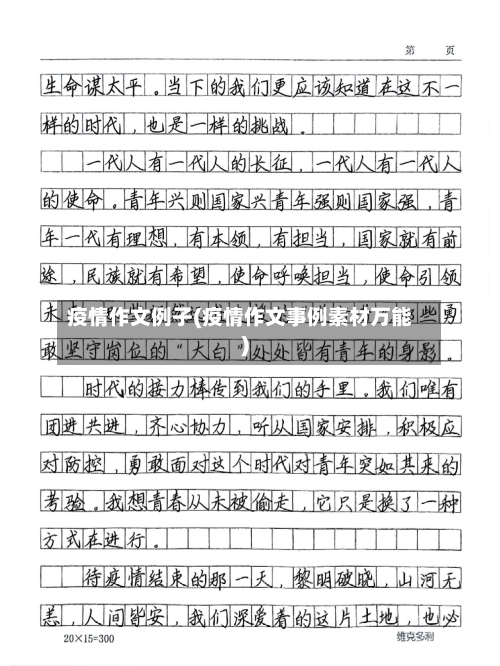 第 页
生命谋太平。当下的我们更应该知道在这不一
样的时代，也是一样的挑战。
一代人有一代人的长征，一代人有一代人
的使命。青年兴则国家兴青年强则国家强，青
年一代有理想，有本领，有担当，国家就有前
途，民族就有希望，使命呼唤担当，使命引领
未
些勇
疫情作文例子(疫情作文事例素材万能
)
敢坚守岗位的“大白”处处皆有青年的身影。
时代的接力棒传到我们的手里。我们唯有
团进共进，齐心协力，听从国家安排，积极应
对防控，勇敢面对这个时代对青年突如其来的
考验。我想青春从未被偷走，它只是换了一种
方式在进行。
待疫情结束的那一天，黎明破晓，山河无
恙，人间皆安，我们深爱着的这片土地，也必
20×15=300 维克多利